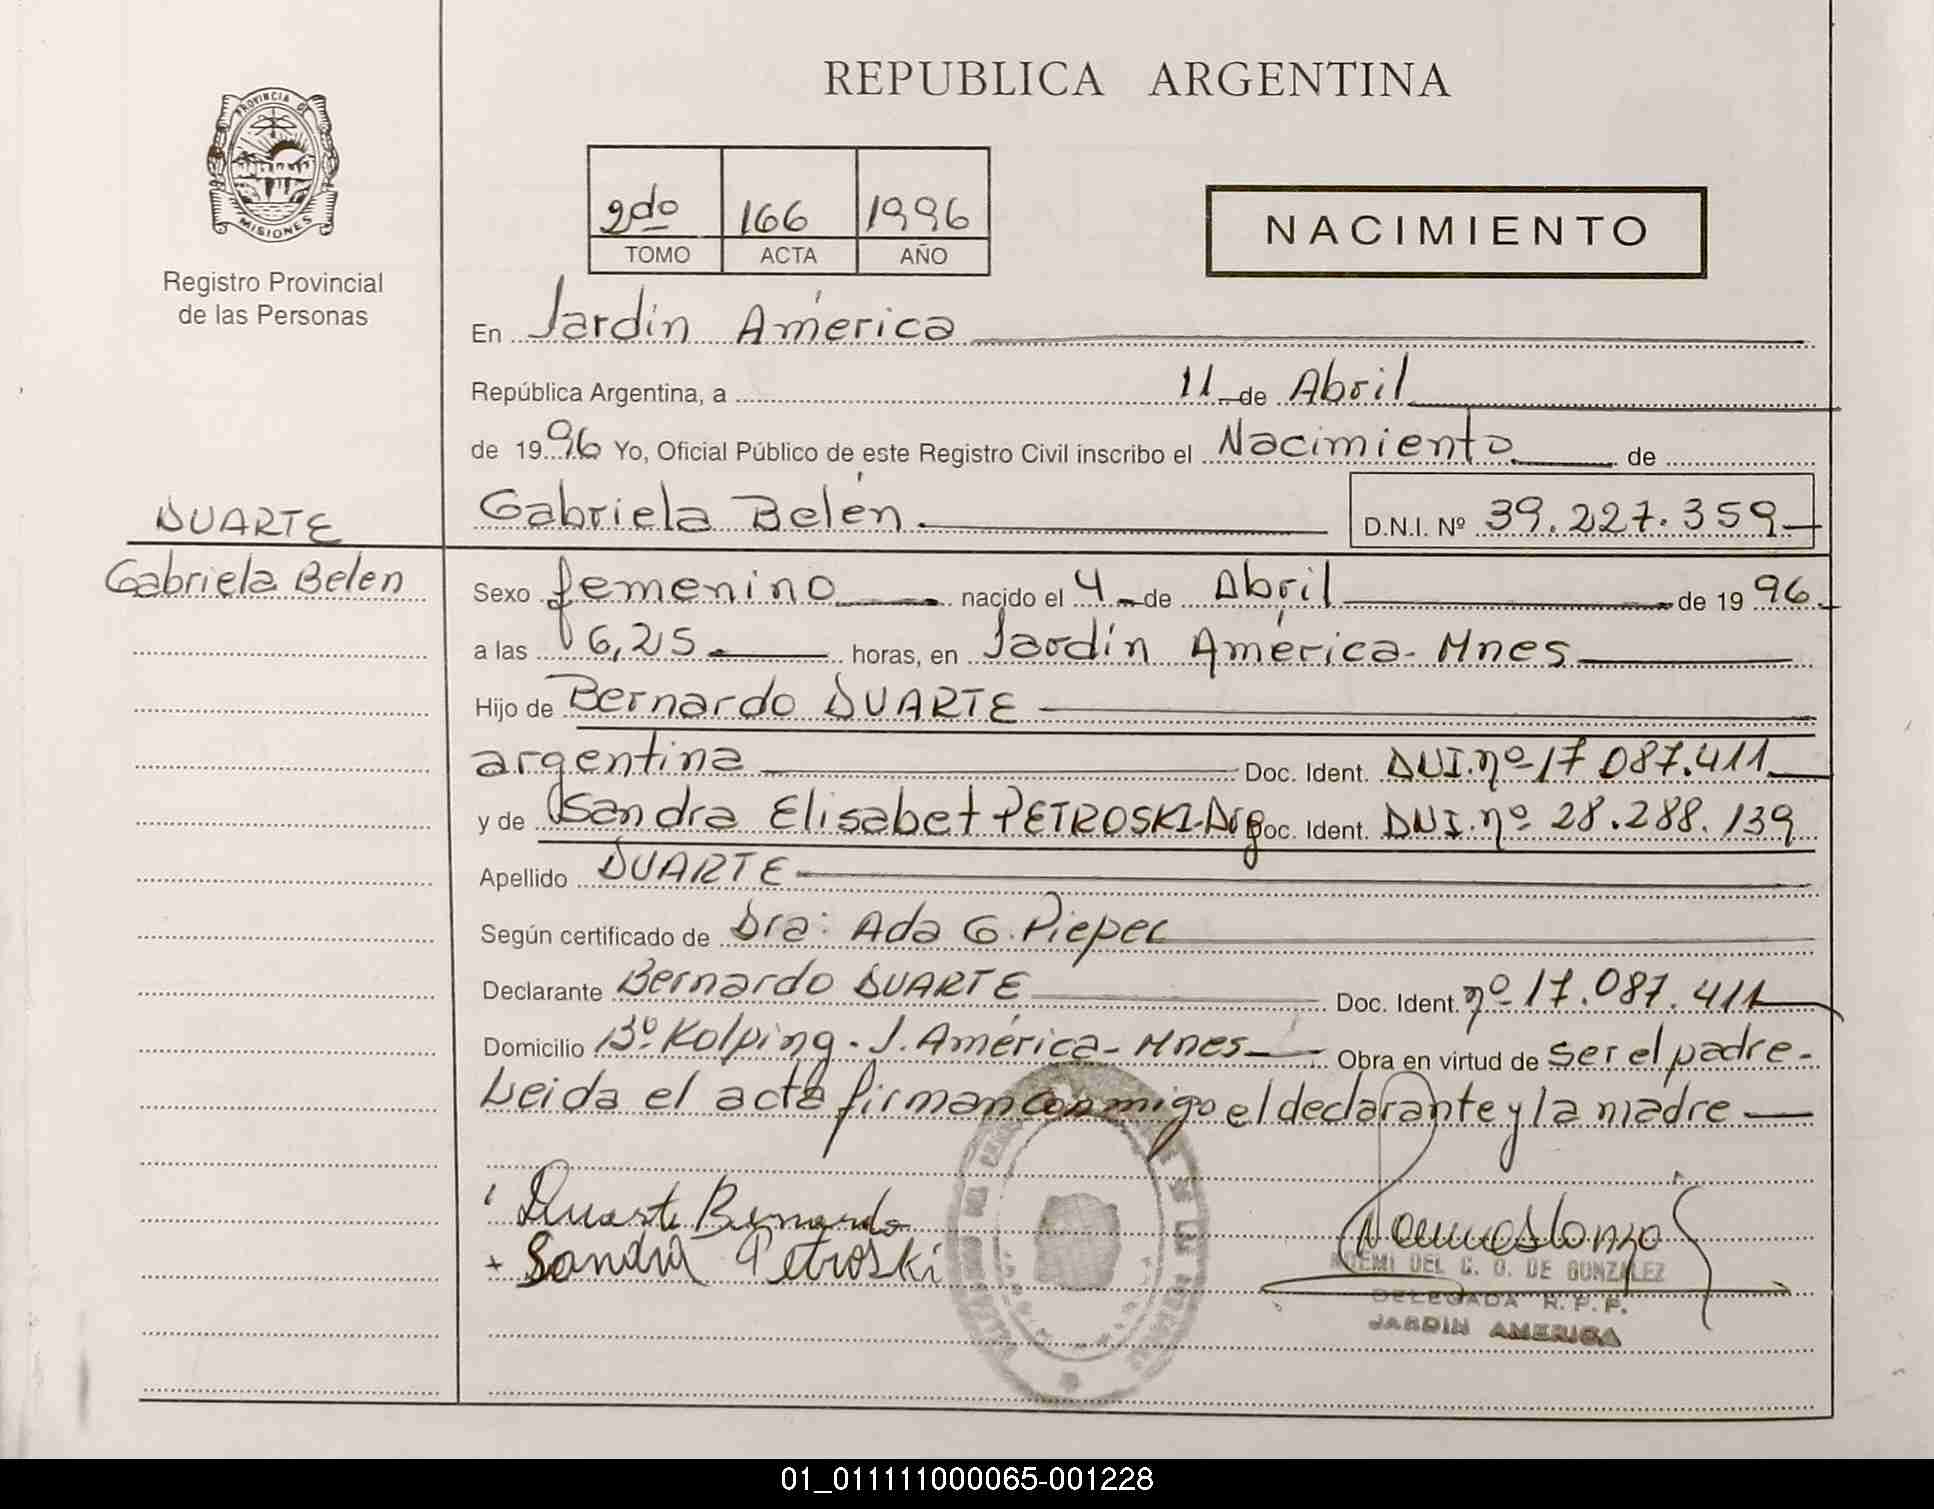 REPUBLICA ARGENTINA
PROVINCIA D
MISIONES
Registro Provincial
de las Personas
2do 166 1996
TOMO ACTA AÑO
NACIMIENTO
En Jardín América
República Argentina, a 11 de Abril
de 1996 Yo, Oficial Público de este Registro Civil inscribo el Nacimiento de
DUARTE
Gabriela Belen
Gabriela Belén D.N.I. Nº 39.227.359
Sexo femenino nacido el 4 de Abril de 1996
a las 6,25 horas, en Jardín América - Mnes
Hijo de Bernardo DUARTE
argentina Doc. Ident. DNI. nº 17 087.411
y de Sandra Elisabet PETROSKI - Arg Doc. Ident. DNI. nº 28.288.139
Apellido DUARTE
Según certificado de Dra: Ada G. Pieper
Declarante Bernardo DUARTE Doc. Ident. nº 17.087.411
Domicilio Bº Kolping - J. América - Mnes Obra en virtud de ser el padre -
Leida el acta firman conmigo el declarante y la madre
Duarte Bernardo
+ Sandra Petroski
NOEMI DEL C. O. DE GONZALEZ
DELEGADA R. P. P.
JARDIN AMERICA
01_011111000065-001228